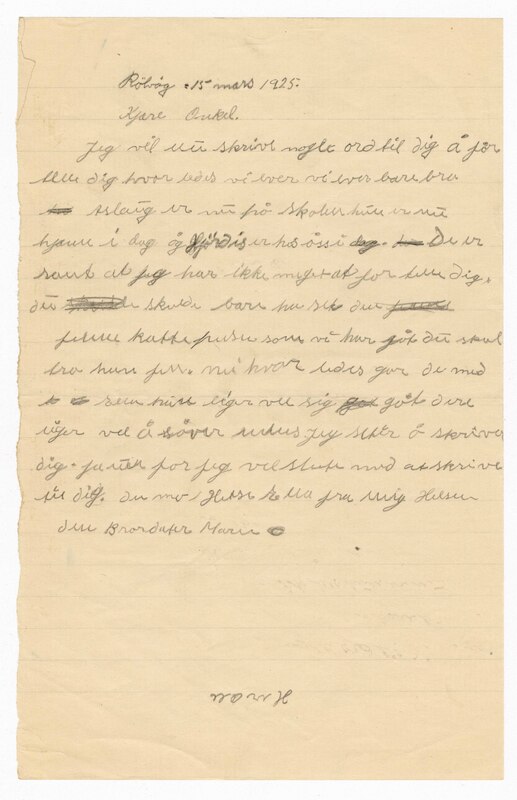 Rölvåg 15 mars 1925.
Kjære Onkel.
Jeg vil nu skrive nogle ord til dig å før
telle dig hvor ledes vi lever vi lever bare bra
Aslaug er nu på skolen hun er nu
hjeme i dag og er hos åss i dag. De er
sant at jeg har ikke myet at for telle dig.
du skulde bare ha set den
pene katte pusen som vi har göt du skal
tro hun per. nu hvor ledes gor de med
hun liger vel sig göt dere
liger vel å söver Jeg sitter å skriver
dig. ja nu for jeg vel slute med at skrive
til dig. du mo Helse Ella fra mig Helsen
din Brordater Marie